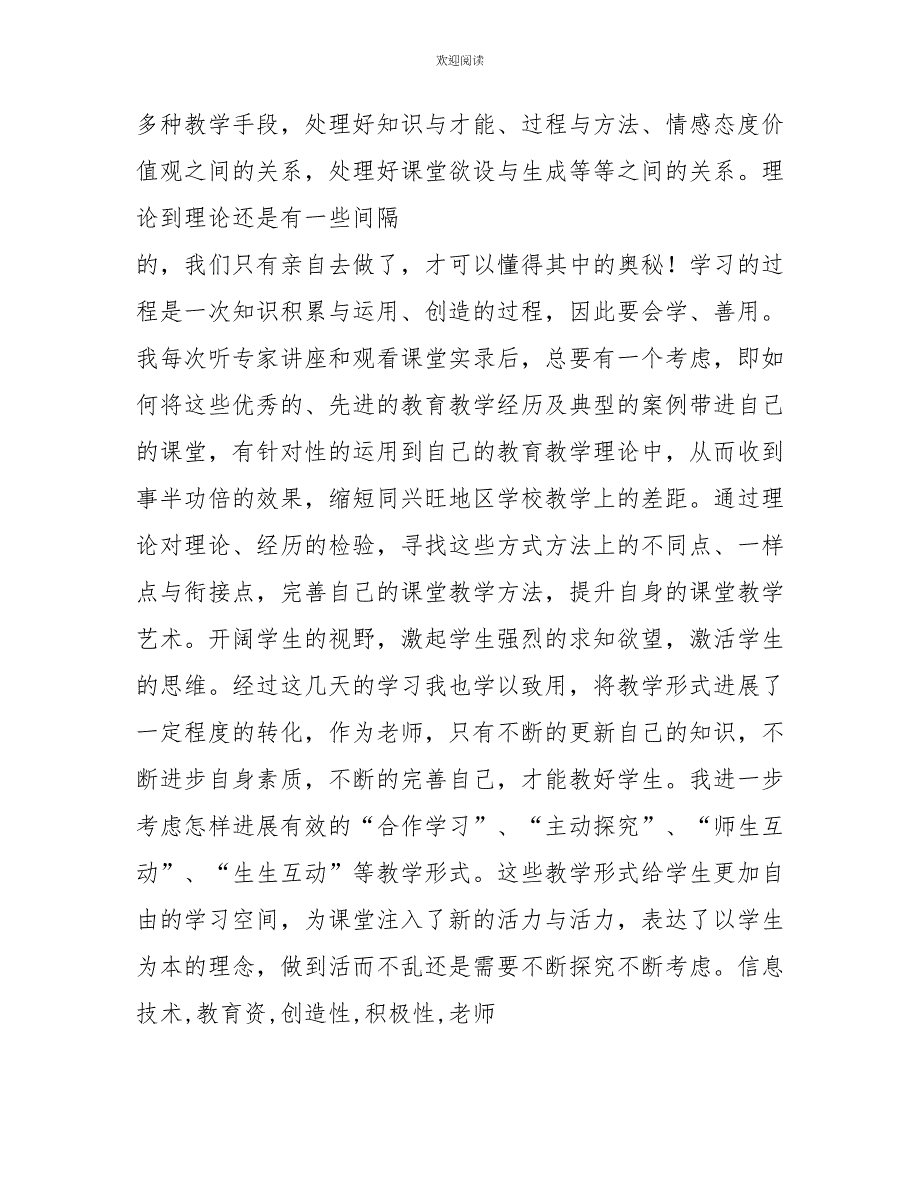 欢迎阅读
多种教学手段，处理好知识与才能、过程与方法、情感态度价
值观之间的关系，处理好课堂欲设与生成等等之间的关系。理
论到理论还是有一些间隔
的，我们只有亲自去做了，才可以懂得其中的奥秘！学习的过
程是一次知识积累与运用、创造的过程，因此要会学、善用。
我每次听专家讲座和观看课堂实录后，总要有一个考虑，即如
何将这些优秀的、先进的教育教学经历及典型的案例带进自己
的课堂，有针对性的运用到自己的教育教学理论中，从而收到
事半功倍的效果，缩短同兴旺地区学校教学上的差距。通过理
论对理论、经历的检验，寻找这些方式方法上的不同点、一样
点与衔接点，完善自己的课堂教学方法，提升自身的课堂教学
艺术。开阔学生的视野，激起学生强烈的求知欲望，激活学生
的思维。经过这几天的学习我也学以致用，将教学形式进展了
一定程度的转化，作为老师，只有不断的更新自己的知识，不
断进步自身素质，不断的完善自己，才能教好学生。我进一步
考虑怎样进展有效的“合作学习”、“主动探究”、“师生互
动”、“生生互动”等教学形式。这些教学形式给学生更加自
由的学习空间，为课堂注入了新的活力与活力，表达了以学生
为本的理念，做到活而不乱还是需要不断探究不断考虑。信息
技术,教育资,创造性,积极性,老师